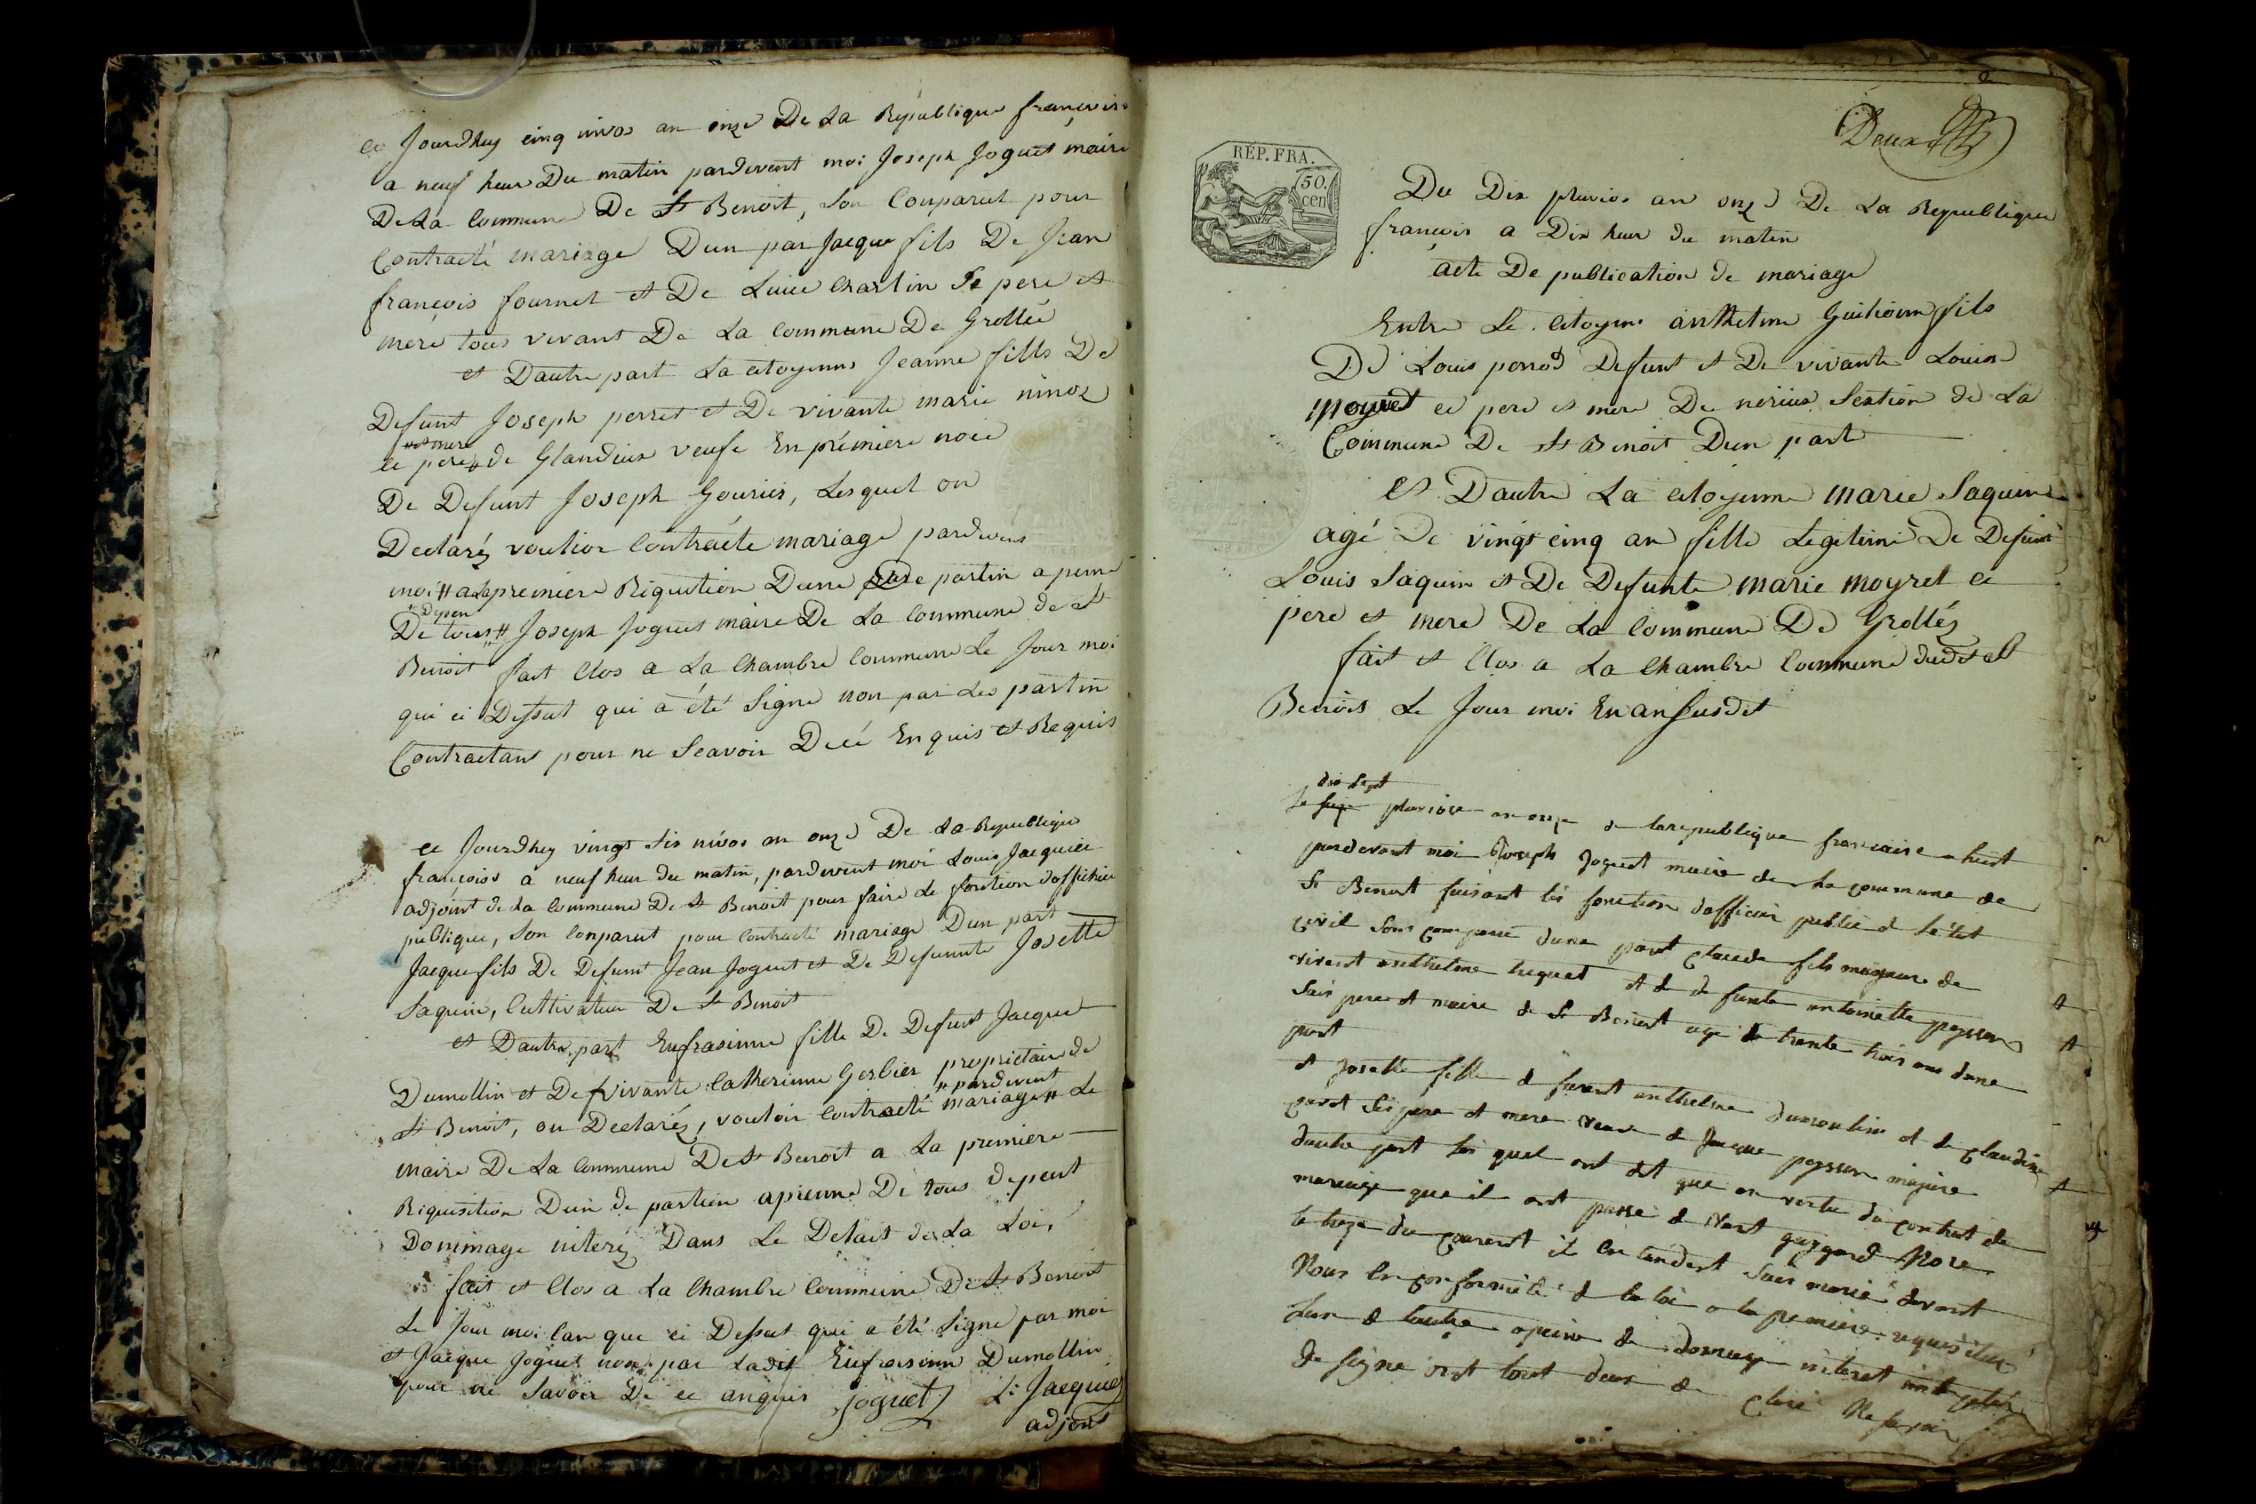 ce Jourdhuy cinq nivos an onze De La République francois
a neuf heur Du matin pardevent moi Joseph Joguet maire
De La Commune De St Benoit, Son Conparut pour
Contracté mariage Dun par Jacque fils De Jean
francois fournet et De Luice Chartin Se pere et
mere tous vivant De La Commune De Grollée
et Dautre part La citoyenne Jeanne fille De
Defunt Joseph perret et De vivante marie ninoz
et mere
ce pere # de Glandieu veufe En premiere noce
De Defunt Joseph Gouries, Lesquel on
Declaréz voulior Contractè mariage pardevens
moi # a La premiere Riquition Dune partin a penne
# depen
De tous # Joseph Joguet maire De La Commune de St
Benoit fait Clos a La Chambre Commune Le Jour moi
qui ci Dessut qui a été Signe non par Les partin
Contractans pour ne Scavoir Decé Enquis et Requis
ce Jourdhuy vingt six nivos an onze De La Republique
francoiss a neuf heur du matin, pardevent moi Louis Jacquiér
adjoint de La Commune De St Benoit pour faire Le fontion doffichier
publique, Son Conparut pour Contracté mariage Dun part
Jacque fils De Defunt Jean Joguet et De Defunnte Josette
Saquin, Cultivateur De St Benoit
et Dautre part Eufrasinne fille De Defunt Jacque
Dumollin et De vivante Catherinne Gerbier proprietaire de
# pardevent
St Benoit, on Declaréz, vouloir Contracté mariage # Le
maire De La Commune De St Benoit a La premiere
Riquisition Dun de partien apienne De tous depent
Dommage interéz Dans Le Delait de La Loi,
fait et Clos a La Chambre Commune De St Benoit
Le Jour moi Lan que ci Dessut qui a été Signe par moi
et Jacque Joguet non par Ladit Eufrasinn Dumollin
pour ne Savoir De ce anquis Joguet L: Jacquiér
adjont
Deux
REP. FRA.
50.
cen
Du Dix pluvios an onze De La Republique
francois a Dix heur du matin
acte De publication de mariage
Entre Le Citoyen anthelme Guilioim fils
De Louis perrod Defunt et De vivante Louise
moyret ce pere et mere De nerieux Section de La
Commune De St Benoit Dun part
et Dautre La citoyenne marie Saquin
agé De vingt cinq an fille Legitime De Defunt
Louis Saquin et De Defunte marie moyret ce
pere et mere De La Commune De Grolléz
fait et Clos a La Chambre Commune dudit St
Benoit Le Jour moi En an Susdit
dix Sept
Le pluviose an onze de la republique francaise a huit
pardevant moi Joseph Joguet maire de la commune de
St Benoit faisant les fonction dofficier public de le tat
civil sont comparu dune part claude fils majeure de
vivent anthelme huguet et de de funte antoinette peysson
Sais pere et maire de St Benoit age de trente trois ans dune
part
et Josette fille de furent anthelme dumoulin et de claudine
Ses pere et mere veuve de Jacque peysson majure
dautre part les quel ont dit que en vertu du contrat de
mariage que il ont passé de vant guygard Nore
le treze du courent il en tendent sais marié devant
Nous en conformité de la loi a la premiere requisition
lun de lautre a peine de domage interet
de signe ont tout deux de claré Ne savoir